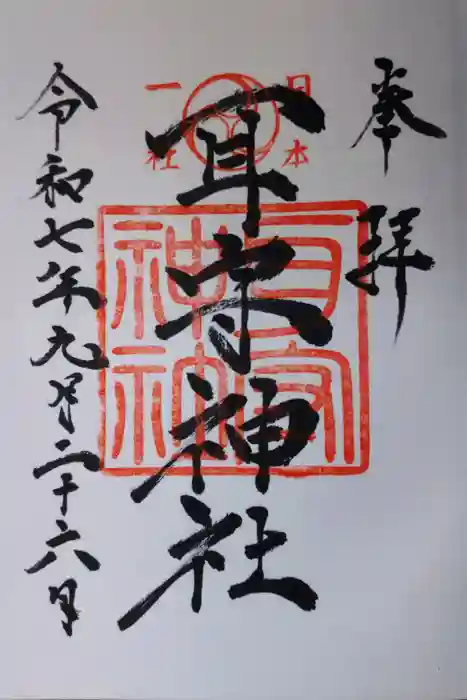 奉拝
日本
一社
耳守神社
耳守
神社
令和七年九月二十六日